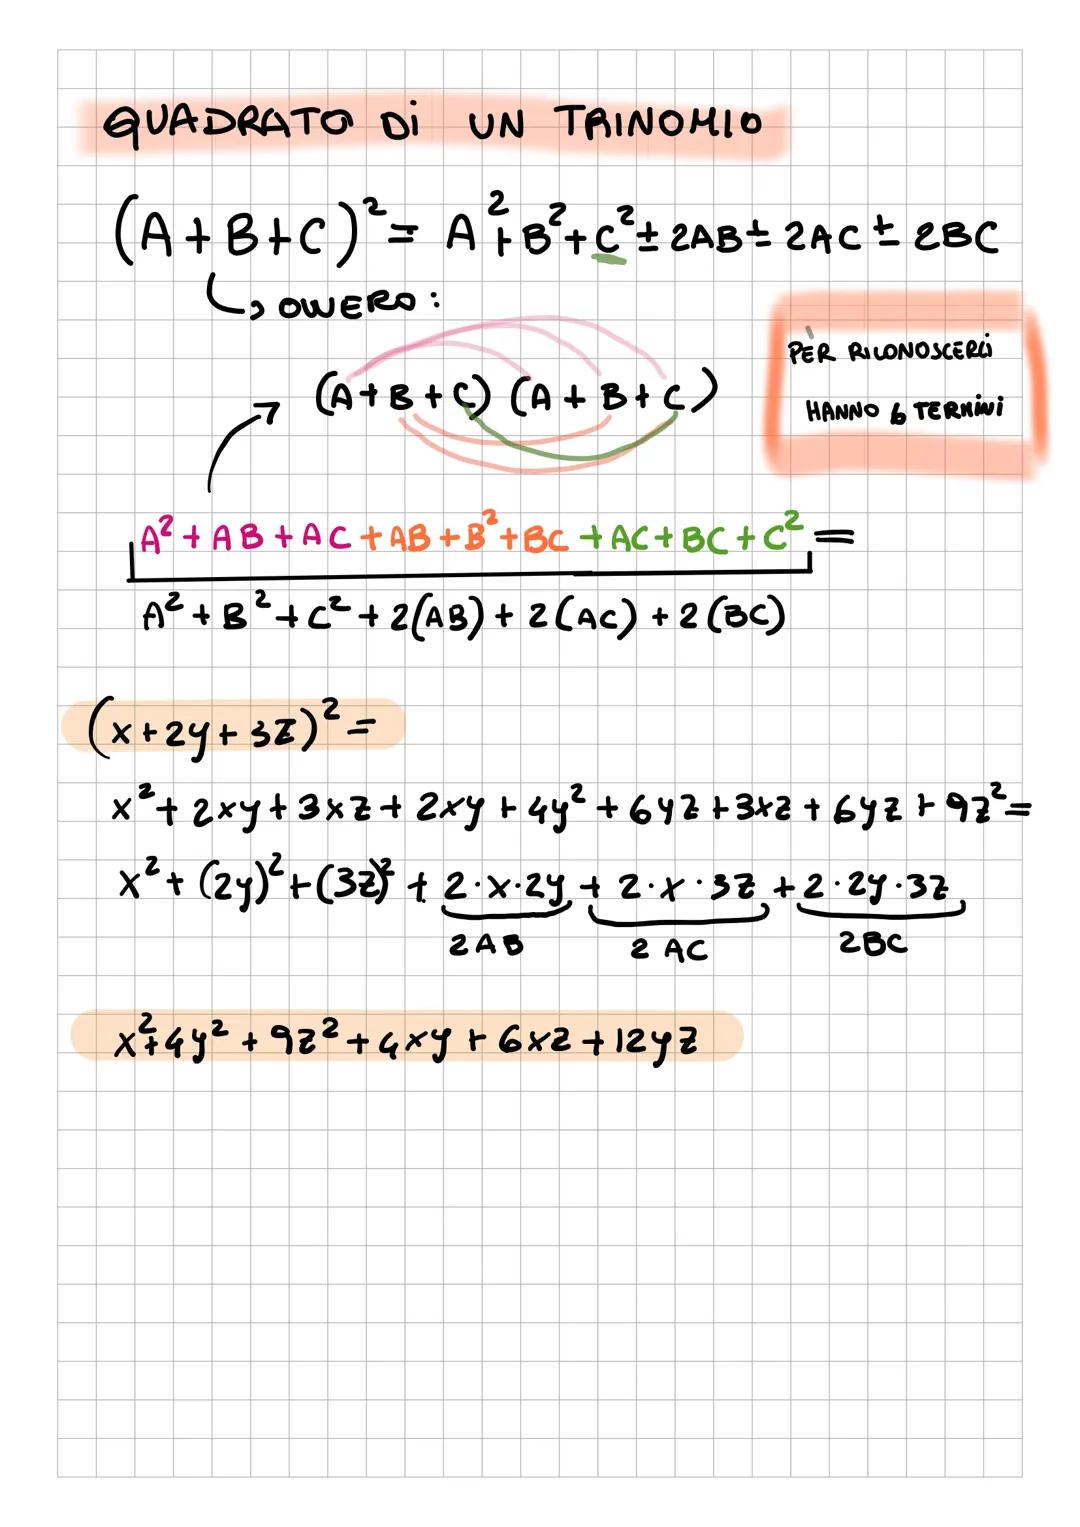 QUADRATO Di UN TRINOMIO
(A+B+C)²= A²+B²+C²± 2AB± 2AC ± 2BC
↳ OVVERO:
(A+B+C) (A+B+C)
PER RICONOSCERLI
HANNO 6 TERMINI
A²+AB+AC+AB+B²+BC+AC+BC+C²=
A²+B²+C²+2(AB)+2(AC)+2(BC)
(x+2y+3z)²=
x²+2xy+3xz+2xy+4y²+6yz+3xz+6yz+9z²=
x²+(2y)²+(3z)²+2·x·2y+2·x·3z+2·2y·3z
2AB 2AC 2BC
x²+4y²+9z²+4xy+6xz+12yz